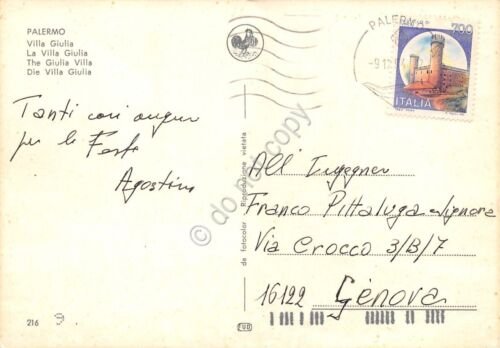 PALERMO
Villa Giulia
La Villa Giulia
The Giulia Villa
Die Villa Giulia
Tanti cari auguri
per le Feste
Agostino
216
da fotocolor Riproduzione vietata
PALERMO
-9.12.
700
ITALIA
All' Ingegner
Franco Pittaluga e Signora
Via Crocco 3/B/7
16122 Genova
© do not copy